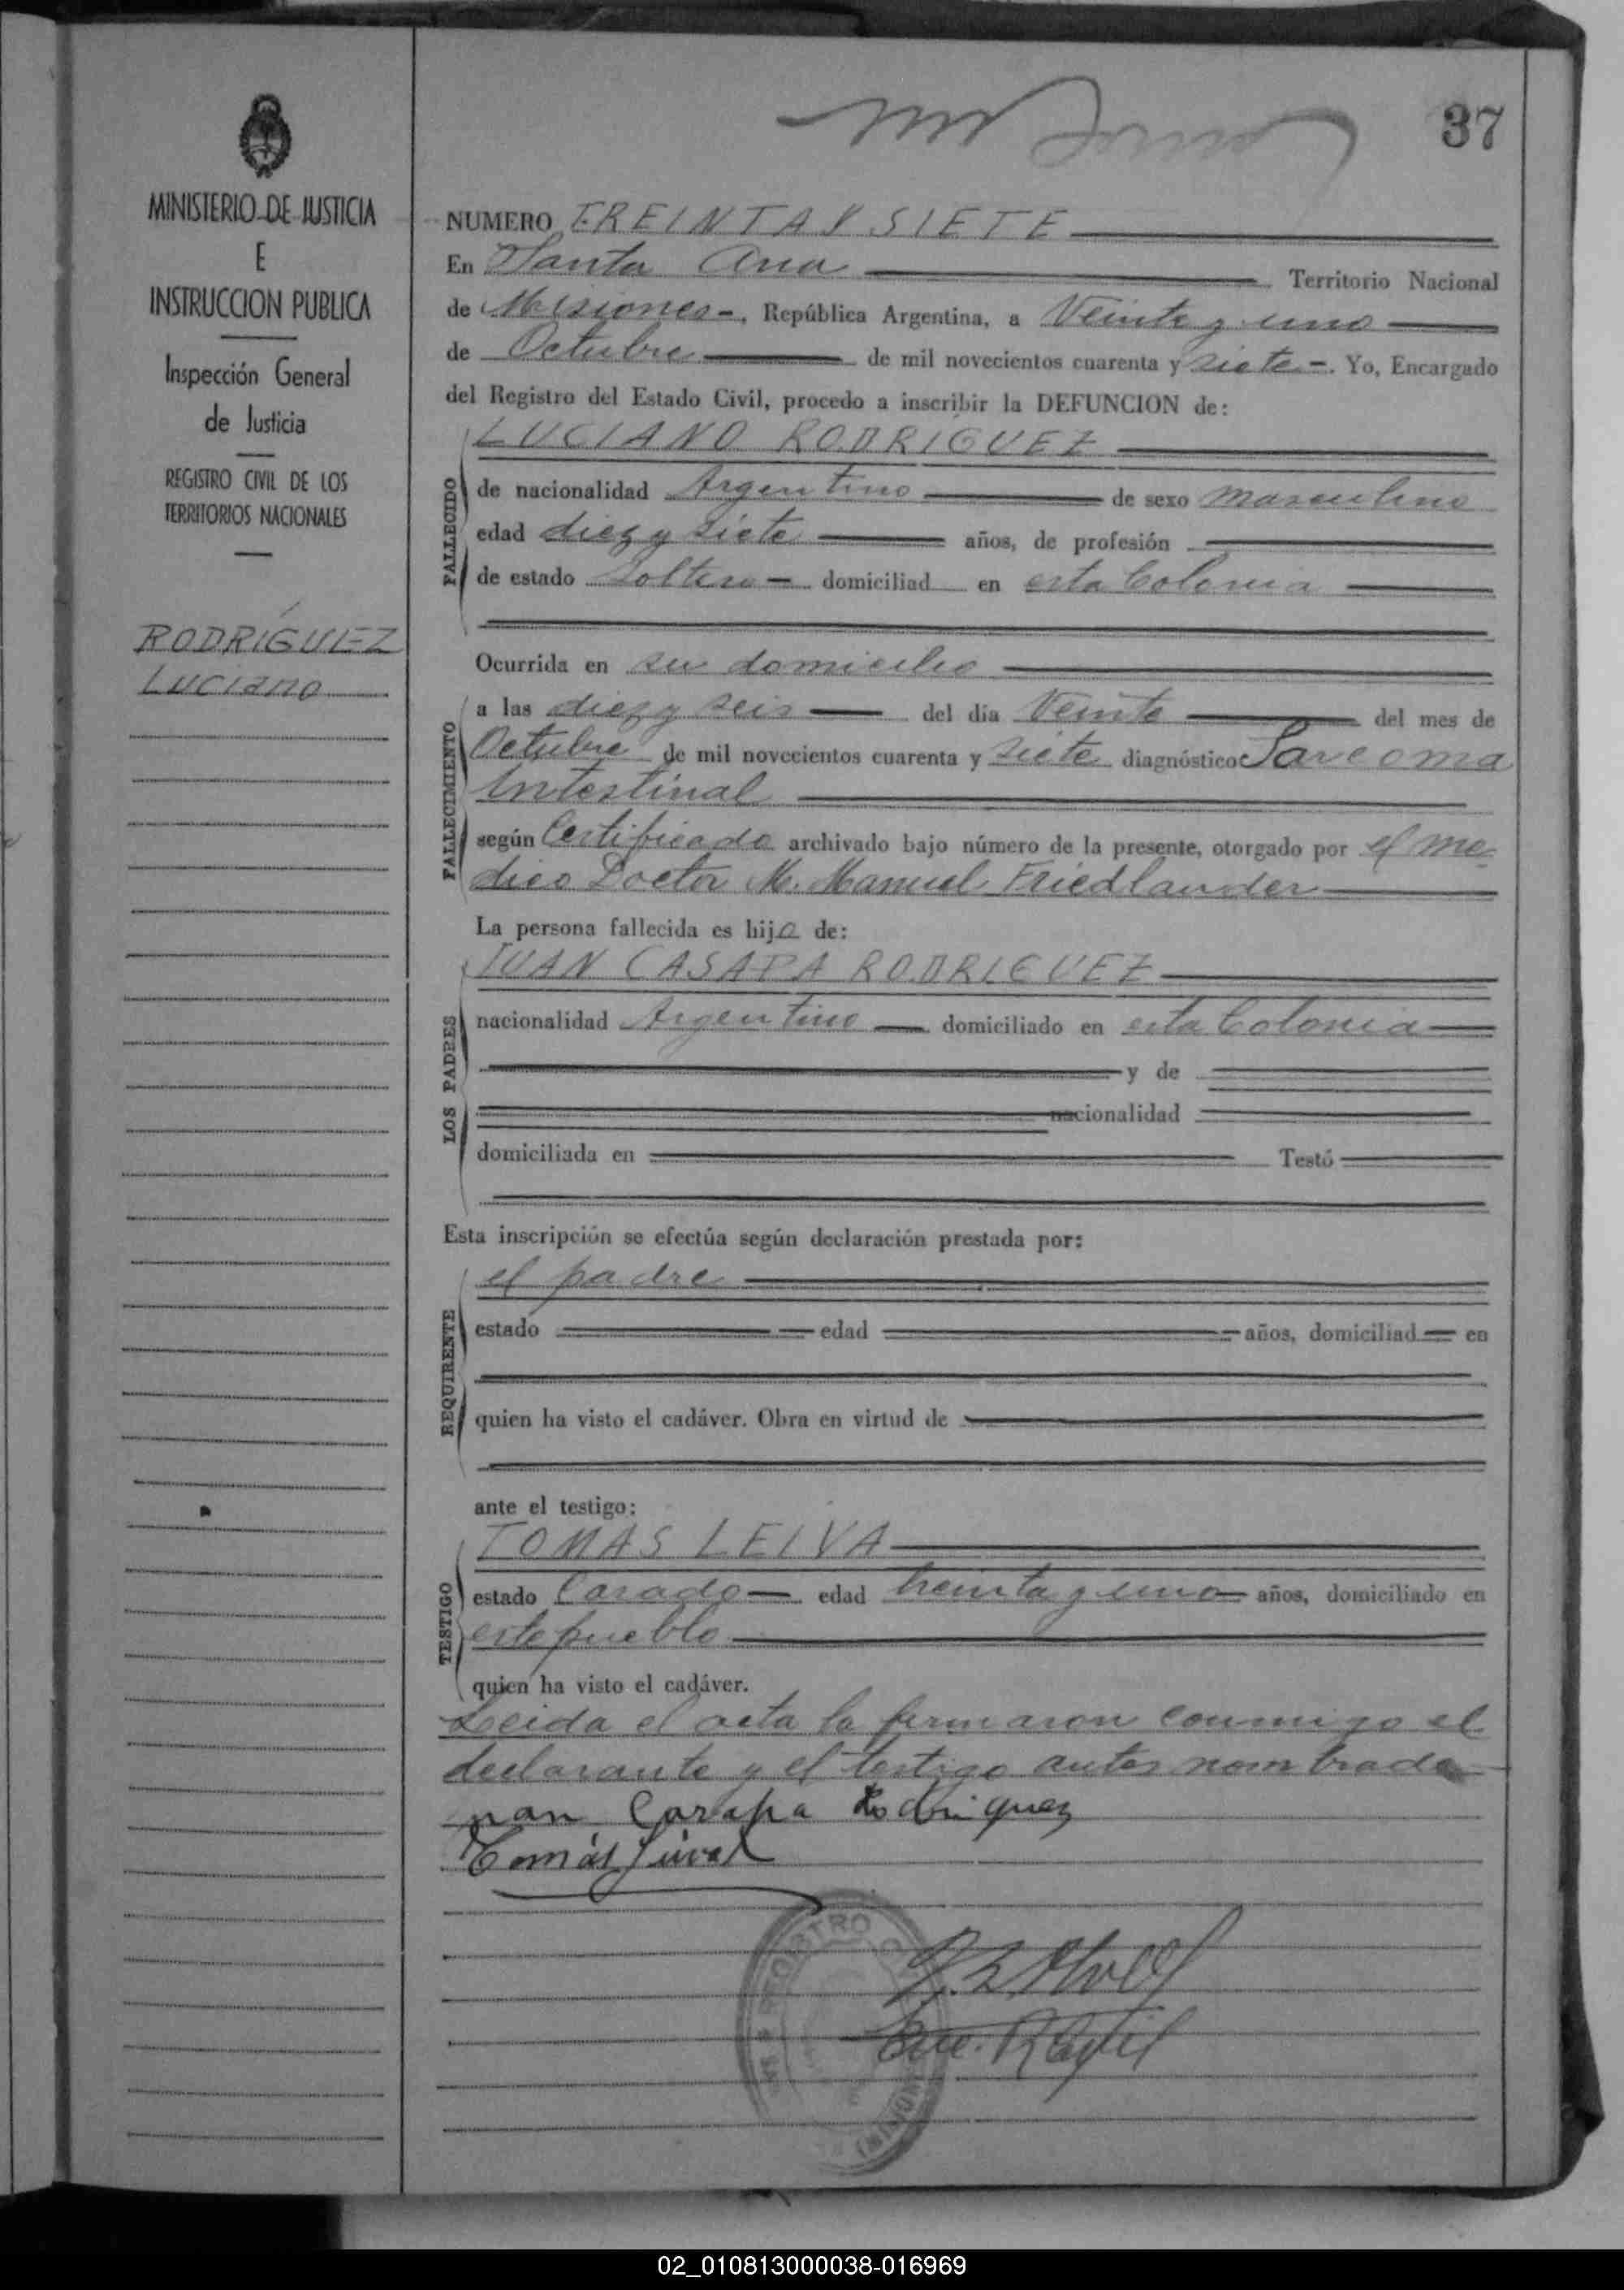 37
MINISTERIO DE JUSTICIA
E
INSTRUCCION PUBLICA
Inspección General
de Justicia
REGISTRO CIVIL DE LOS
TERRITORIOS NACIONALES
RODRÍGUEZ
Luciano
NUMERO TREINTA Y SIETE
En Santa Ana Territorio Nacional
de Misiones-, República Argentina, a Veinte y uno
de Octubre de mil novecientos cuarenta y siete-. Yo, Encargado
del Registro del Estado Civil, procedo a inscribir la DEFUNCION de:
LUCIANO RODRIGUEZ
FALLECIDO
de nacionalidad Argentino de sexo masculino
edad diez y siete años, de profesión
de estado Soltero - domiciliad en esta Colonia
Ocurrida en su domicilio
FALLECIMIENTO
a las diez y seis del día Veinte del mes de
Octubre de mil novecientos cuarenta y siete diagnóstico Sarcoma
Intestinal
según Certificado archivado bajo número de la presente, otorgado por el me-
dico Doctor M. Manuel Friedlander
La persona fallecida es hijo de:
LOS PADRES
JUAN CASAPA RODRIGUEZ
nacionalidad Argentino domiciliado en esta Colonia
y de
nacionalidad
domiciliada en Testó
Esta inscripción se efectúa según declaración prestada por:
REQUIRENTE
el padre
estado edad años, domiciliad en
quien ha visto el cadáver. Obra en virtud de
ante el testigo:
TESTIGO
TOMAS LEIVA
estado Casado - edad treinta y uno años, domiciliado en
este pueblo
quien ha visto el cadáver.
Leida el acta la firmaron conmigo el
declarante y el testigo antes nombrado
Rodriguez
Tomás
REGISTRO
02_010813000038-016969